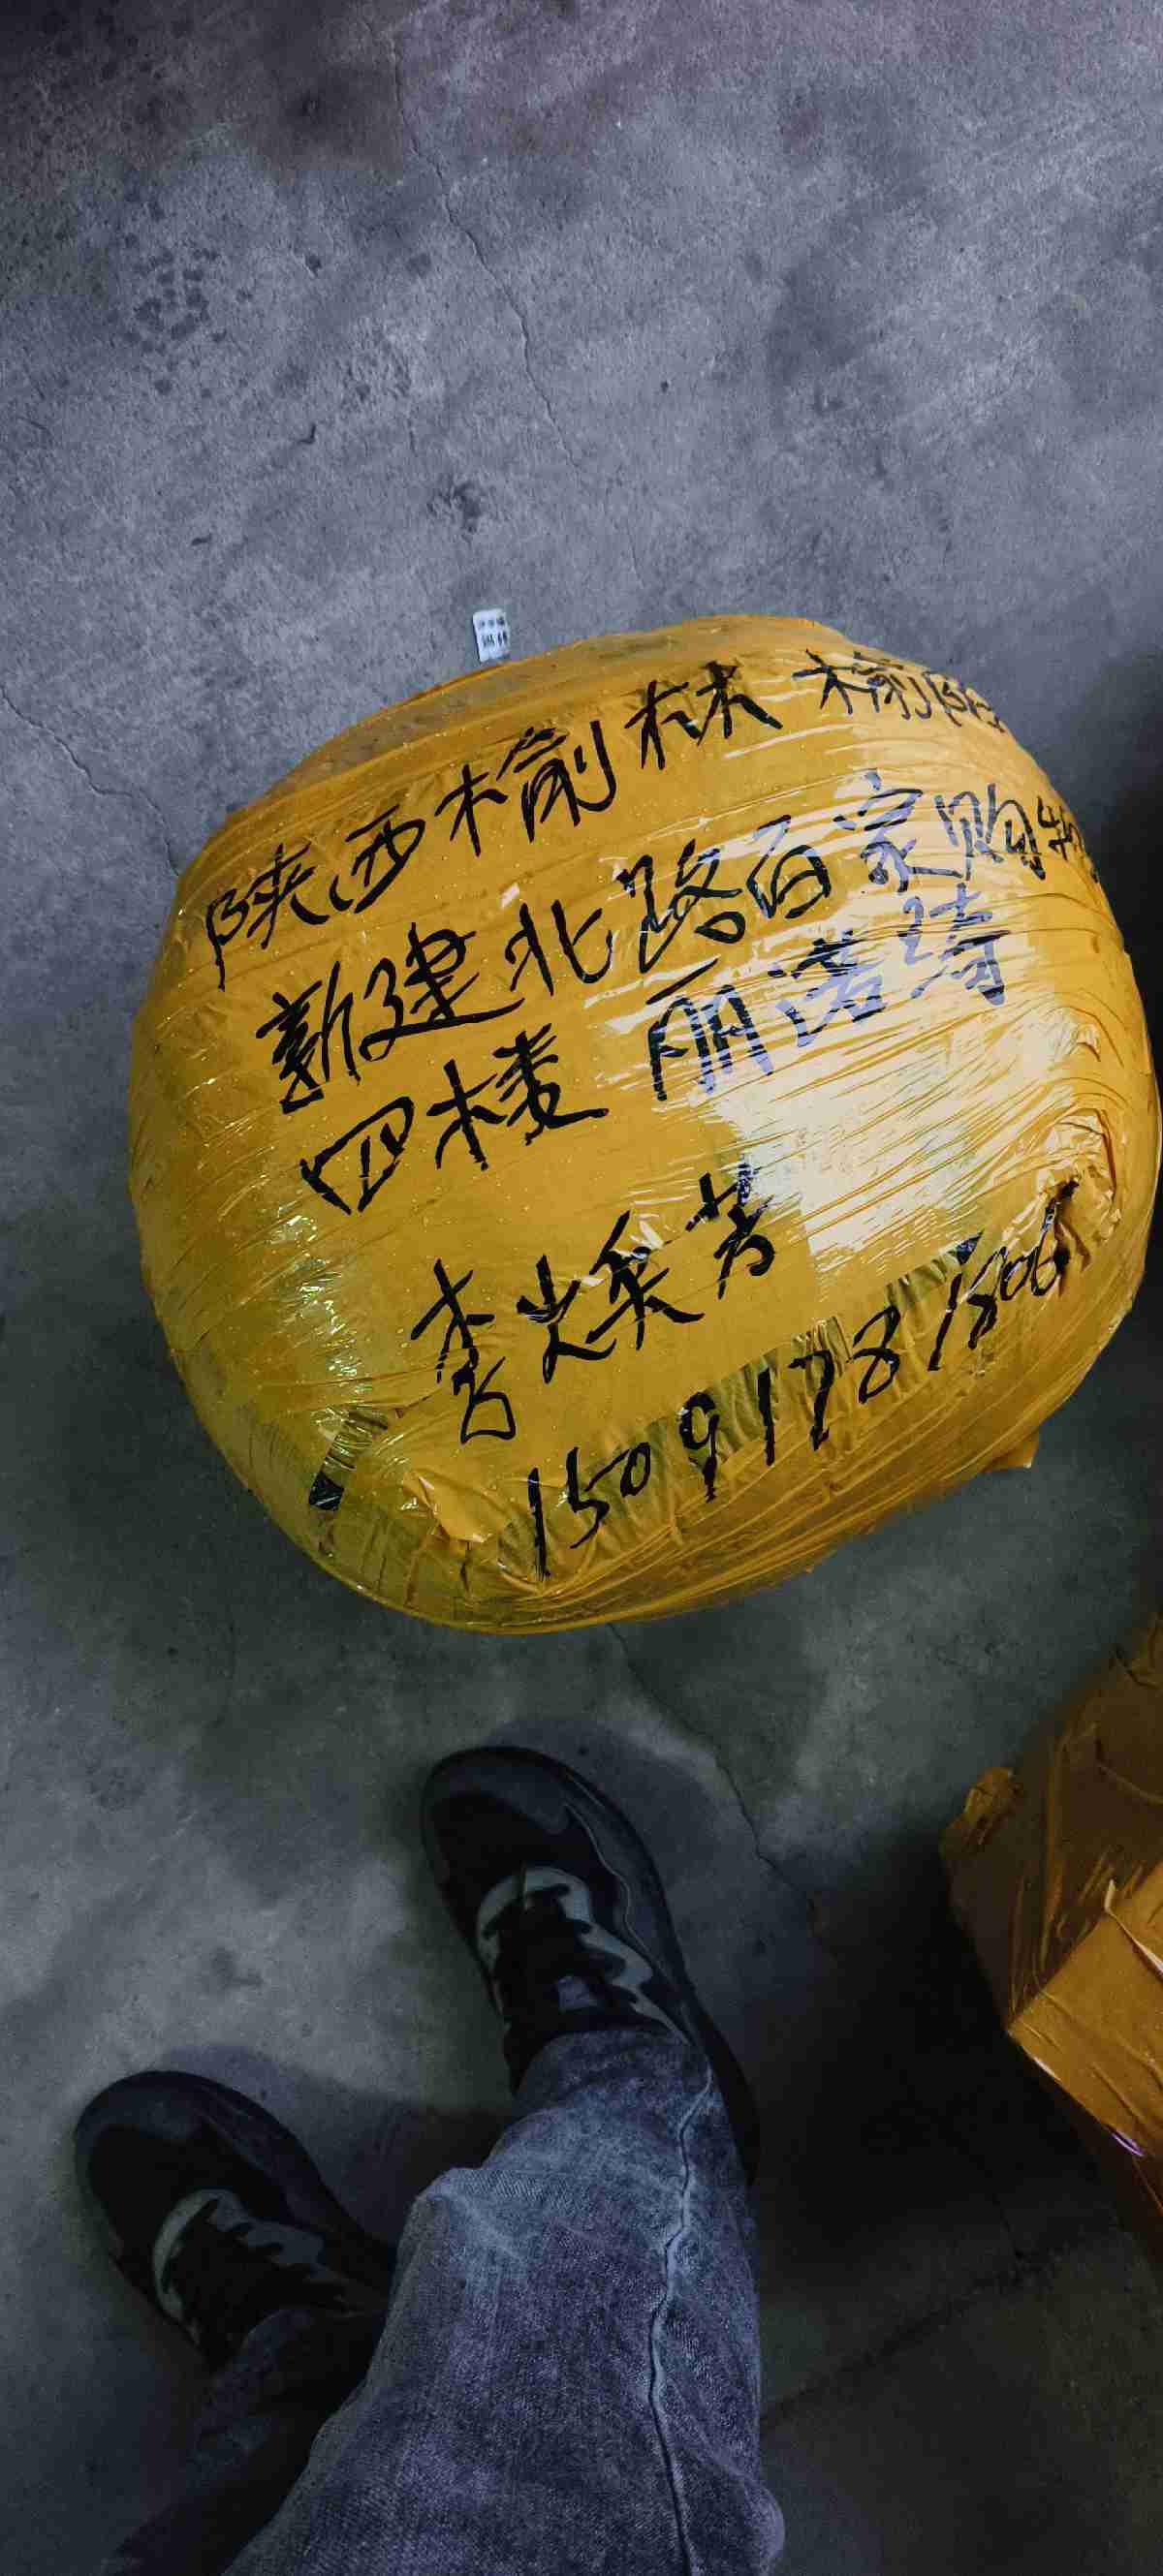 陕西榆林 榆阳
新建北路百家购物
四楼 丽诺诗
李焕芳
15091781506